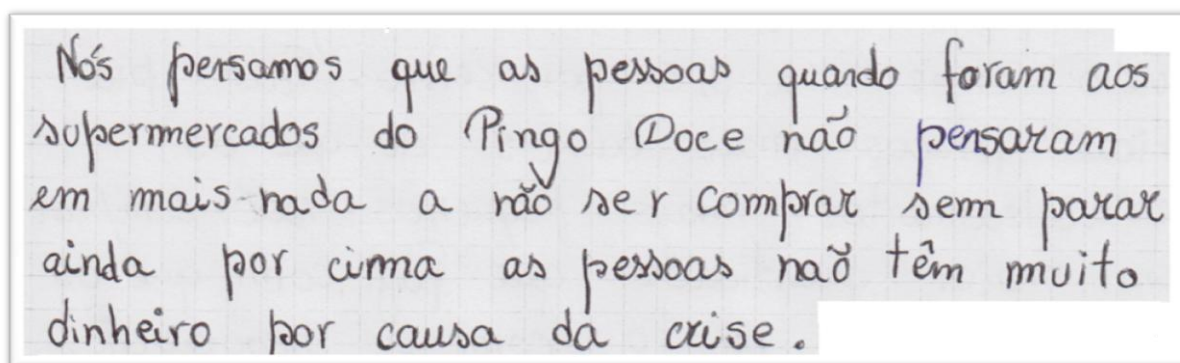 Nós pensamos que as pessoas quando foram aos
supermercados do Pingo Doce não pensaram
em mais nada a não ser comprar sem parar
ainda por cima as pessoas não têm muito
dinheiro por causa da crise.